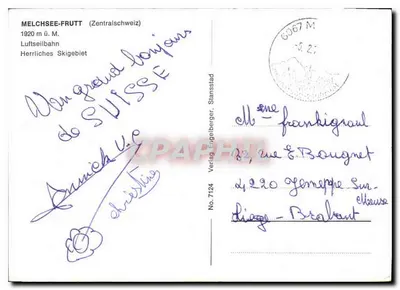 MELCHSEE-FRUTT (Zentralschweiz)
1920 m ü. M.
Luftseilbahn
Herrliches Skigebiet
Un grand bonjour
de SUISSE
Annick
christine
No. 7124 Verlag Engelberger, Stansstad
6067 M
Mme frankignoul
rue E. Bougnet
4220 Jemeppe Sur
Meuse
Liège - Brabant